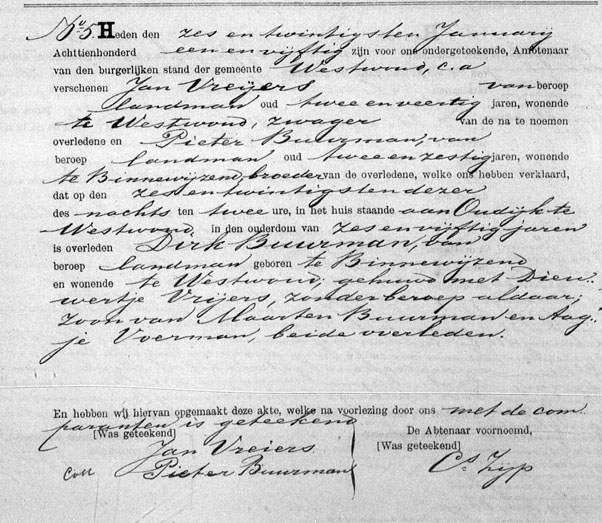 No 5. Heden den zes en twintigsten January
Achttienhonderd een en vijftig zijn voor ons ondergeteekende, Ambtenaar
van den burgerlijken stand der gemeente Westwoud, c.a
verschenen Jan Vreijers van beroep
landman oud twee en veertig jaren, wonende
te Westwoud, zwager van de na te noemen
overledene en Pieter Buurman, van
beroep landman, oud twee en zestig jaren, wonende
te Binnewijzend, broeder van de overledene, welke ons hebben verklaard,
dat op den zes en twintigsten dezer
des nachts ten twee ure, in het huis staande aan Oudijk te
Westwoud, in den ouderdom van zes en vijftig jaren
is overleden Dirk Buurman, van
beroep landman geboren te Binnewijzend
en wonende te Westwoud, gehuwd met Dieu-
wertje Vrijers, zonder beroep aldaar,
zoon van Maarten Buurman en Aag-
je Voerman, beide overleden.
En hebben wij hiervan opgemaakt deze akte, welke na voorlezing door ons met de com-
paranten is geteekend
[Was geteekend]
Jan Vreiers
Coll Pieter Buurman
De Abtenaar voornoemd,
[Was geteekend]
Cs. Zijp